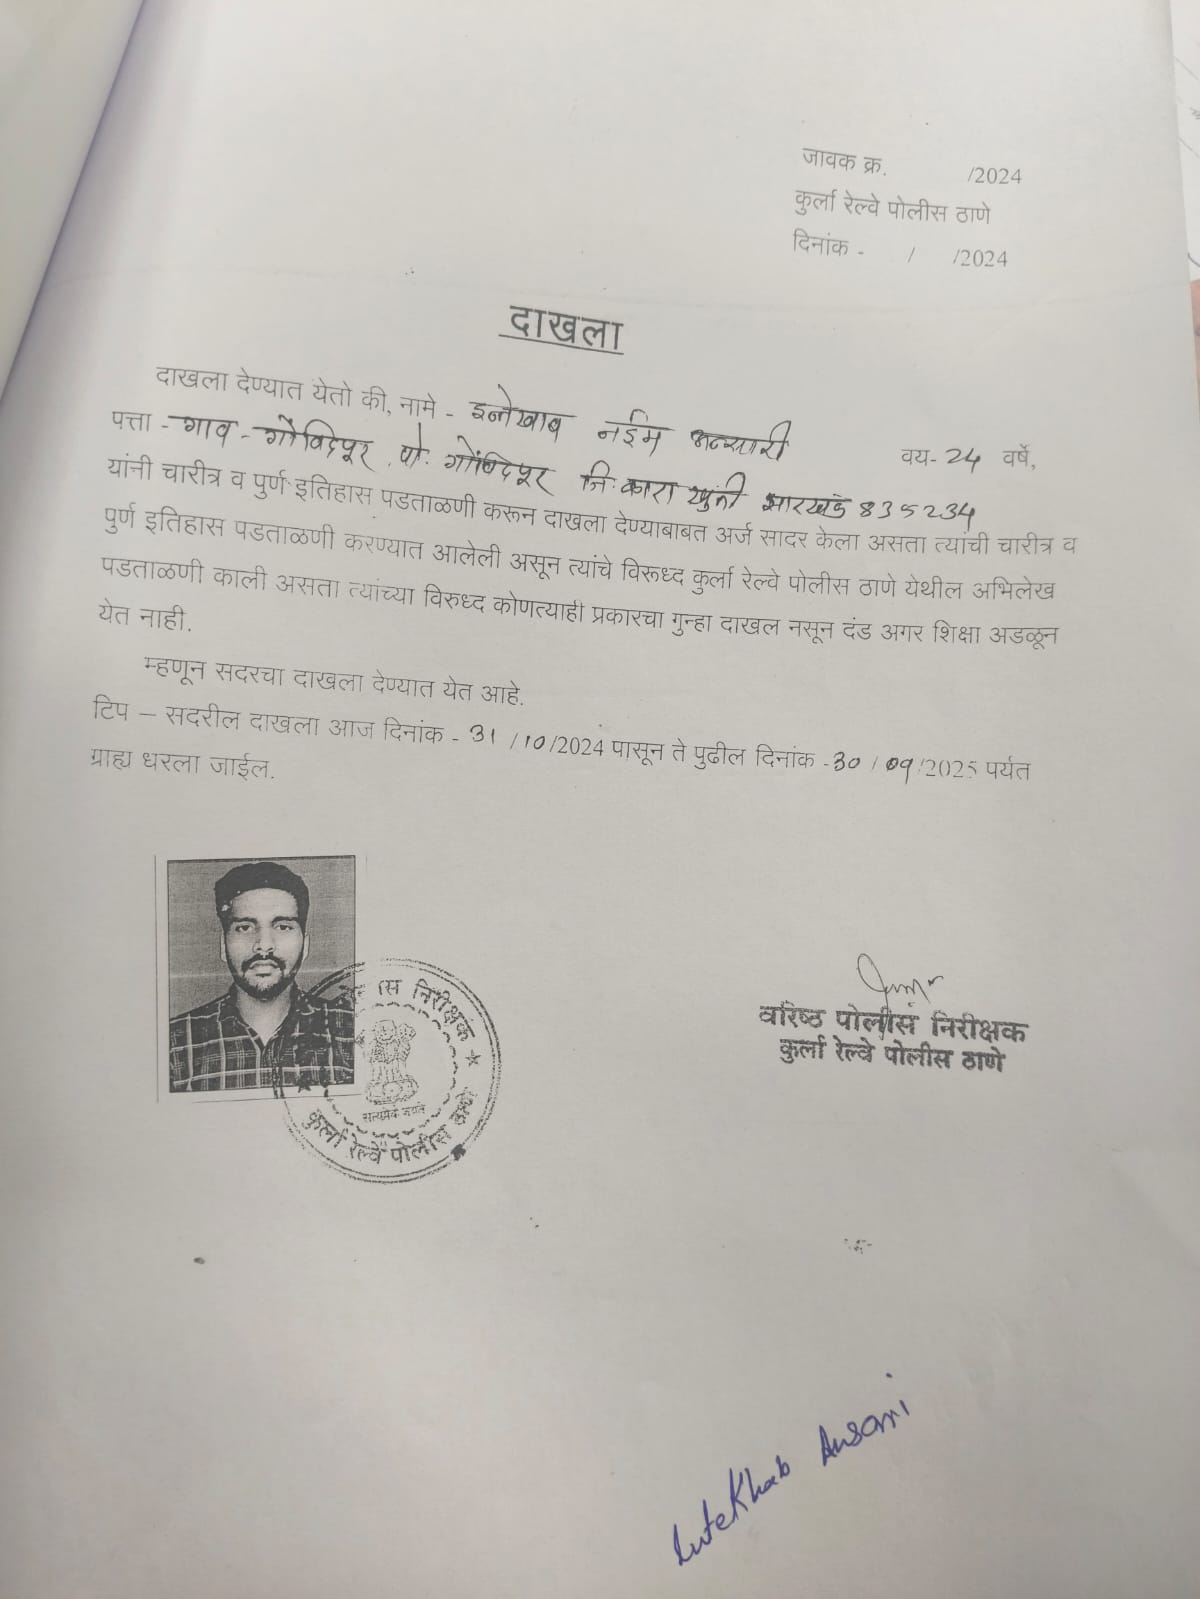 जावक क्र. /2024
कुर्ला रेल्वे पोलीस ठाणे
दिनांक - / /2024
दाखला
दाखला देण्यात येतो की, नामे - इन्तेखाब नईम अन्सारी वय- 24 वर्षे,
पत्ता - गाव - गोविंदपूर पो. गोविंदपूर जि. कारा खुंती झारखंड 835234
यांनी चारीत्र व पुर्ण इतिहास पडताळणी करून दाखला देण्याबाबत अर्ज सादर केला असता त्यांची चारीत्र व
पुर्ण इतिहास पडताळणी करण्यात आलेली असून त्यांचे विरूध्द कुर्ला रेल्वे पोलीस ठाणे येथील अभिलेख
पडताळणी काली असता त्यांच्या विरुध्द कोणत्याही प्रकारचा गुन्हा दाखल नसून दंड अगर शिक्षा अडळून
येत नाही.
म्हणून सदरचा दाखला देण्यात येत आहे.
टिप – सदरील दाखला आज दिनांक - 31 /10/2024 पासून ते पुढील दिनांक -30 / 09 /2025 पर्यत
ग्राह्य धरला जाईल.
स निरीक्षक
सत्यमेव जयते
कुर्ला रेल्वे पोलीस ठाणे
वरिष्ठ पोलीस निरीक्षक
कुर्ला रेल्वे पोलीस ठाणे
Intekhab Ansari